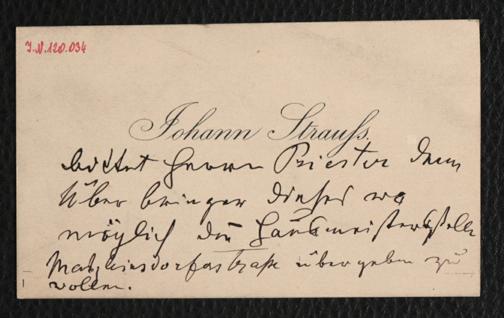 I.N. 120.034
Johann Strauss.
bittet Herrn Priester dem
Überbringer dieses wo
möglich die Hausmeisterstelle
Matzleinsdorferstraße übergeben zu
wollen.